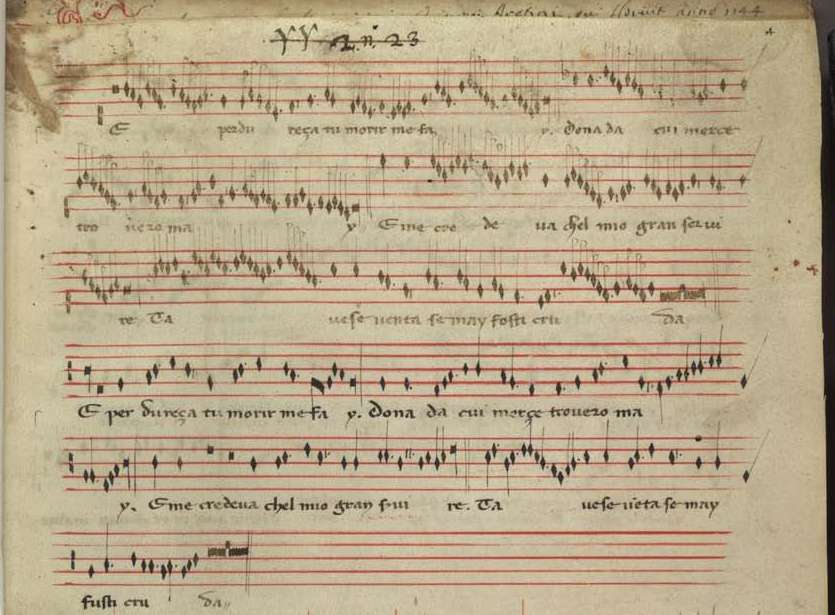 anno 1144
XX 2. n. 23
E perdu reça tu morir me fa y. Dona da cui merce
tro vero ma y E me cre de va chel mio gran ser vi
re. Ta vese venta se may fosti cru da
E per dureça tu morir me fa y. Dona da cui merçe trovero ma
y. E me credeva chel mio gran servi re. Ta vese veta se may
fusti cru da